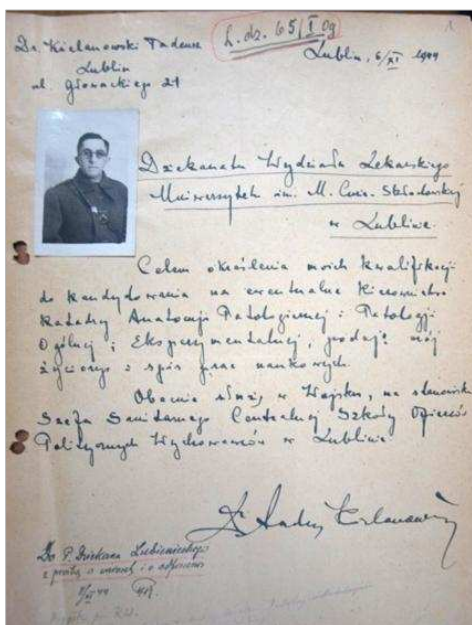 L. dz. 65/I Og
1
Dr. Kielanowski Tadeusz
Lublin, 6/XI 1944
Lublin
ul. Głowackiego 21
Dziekanatu Wydziału Lekarskiego
Uniwersytetu im. M. Curie-Skłodowskiej
w Lublinie.
Celem określenia moich kwalifikacji
do kandydowania na ewentualne kierownictwo
Katedry Anatomji Patologicznej i Patologji
Ogólnej i Eksperymentalnej, podaję mój
życiorys i spis prac naukowych.
Obecnie służę w Wojsku, na stanowisku
Szefa Sanitarnego Centralnej Szkoły Oficerów
Politycznych Wychowawców w Lublinie.
Dr Tadeusz Kielanowski
Do P. Dziekana Lubienieckiego
z prośbą o wniosek i o